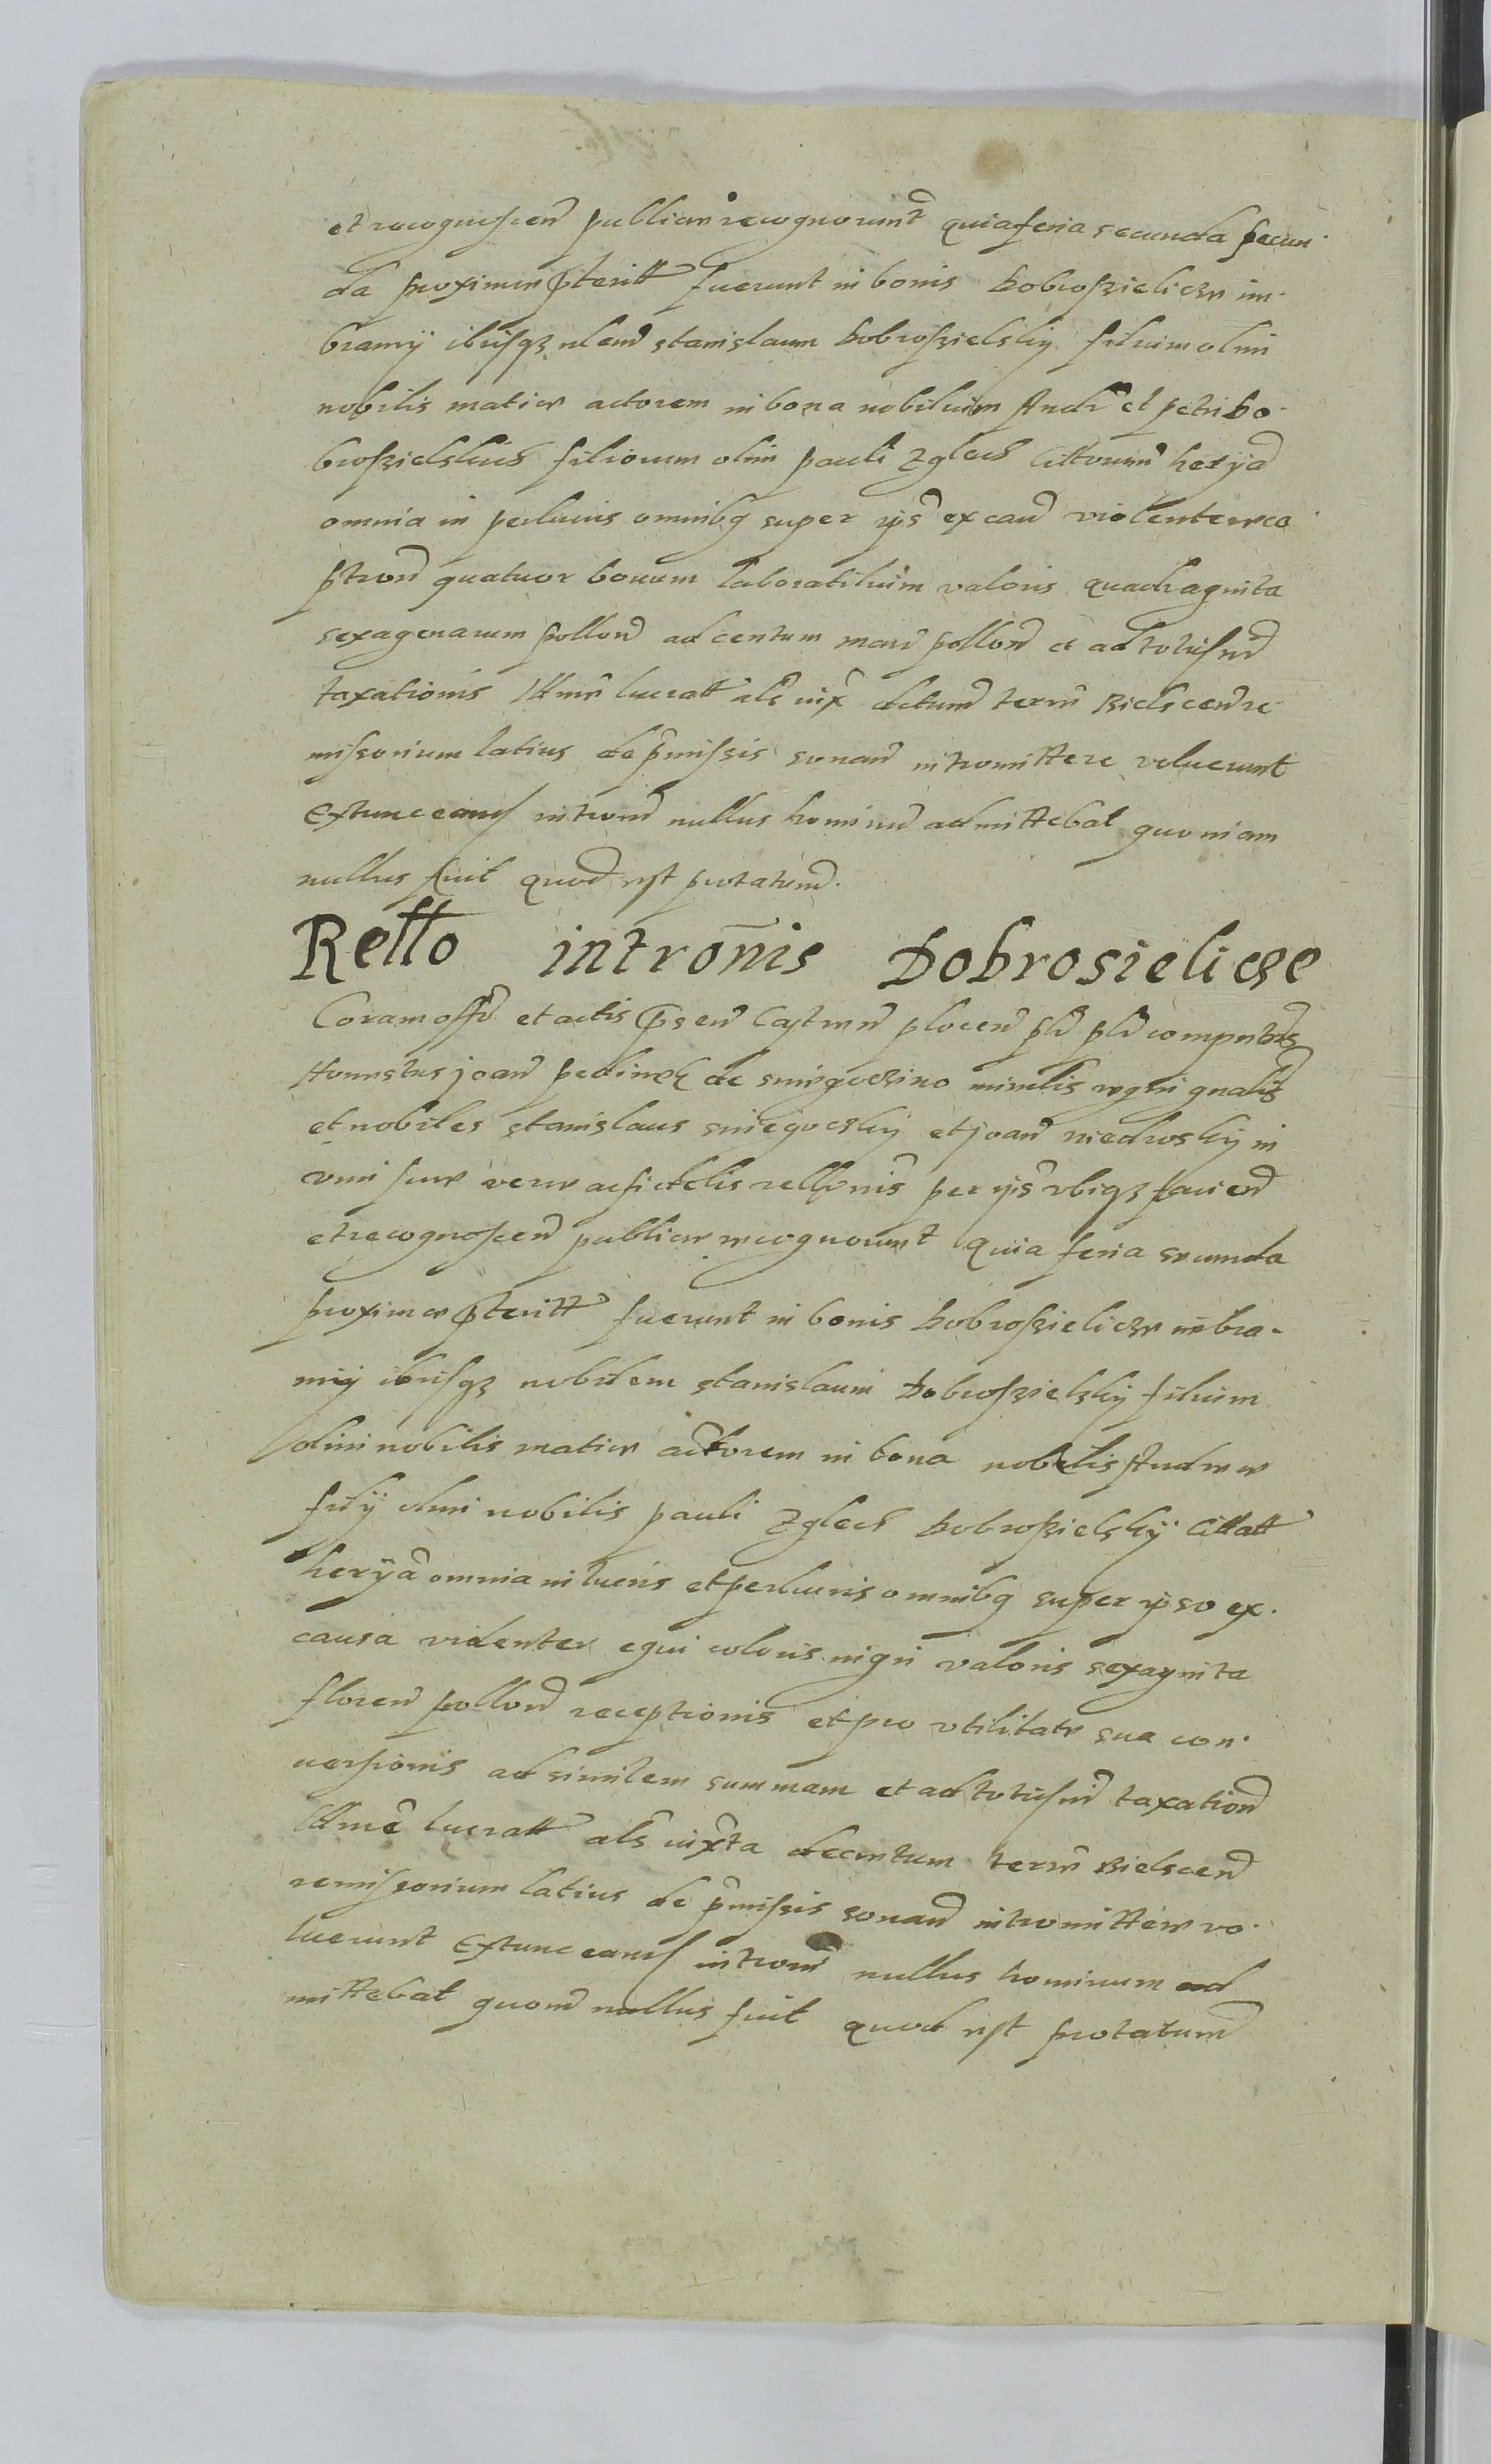 et recognoscen publice recognorunt quia feria secunda secun
da proxime pteritt fuerunt in bonis Dobrosielicze im
bramy ibusqz nlem Stanislaum Dobrosielskij filium olim
nobilis Mathie actorem in bona nobilium Andr et petri Do
brosielskich filiorum olim pauli Zglech Cittorum heryd
omnia in perlucris omnibq super ips ex cau violente rece
ption quatuor boum laboratilium valoris quadraginta
sexagenarum pollon ad centum marc pollon et ad totusm
taxationis luccratt als iux dctum terrn Bielscen re
missorium latius de pmissis sonan intromittere voluerunt
Extunc eamq introm nullus hominum admittebat quoniam
nullus fuit quod est protatum.
Retto intromis Dobrosielicze
Coram offo et actis psen Castren plocen pld pld comprntes
Honestus joan pedinek de sniegoczino minrlis regni gnalis
et nobiles Stanislaus sniegoczkij et joan niedroskij in
vim sue vere ac fidelis rellonis per ips vbiqz facien
et recognoscen publice recognorunt quia feria secunda
proxime pteritt fuerunt in bonis Dobrosielicze imbra
mij ibusqz nobilem Stanislaum Dobrosielskij filium
olim nobilis Mathie actorem in bona nobilis Andree
filij olim nobilis pauli Zglech Dobrosielskij Cittatt
heryd omnia in lucris et perlucris omnibq super ipso ex
causa violenter equi coloris nigri valoris sexaginta
floren pollon receptionis et pro vtilitate sua con
uersionis ad similem summam et ad totusm taxation
luccratt als iuxta decretum terrn Bielscen
remissorium latius de pmissis sonan intromittere vo
luerunt Extunc eamq introm nullus hominum ad
mittebat quom nullus fuit quod est protatum